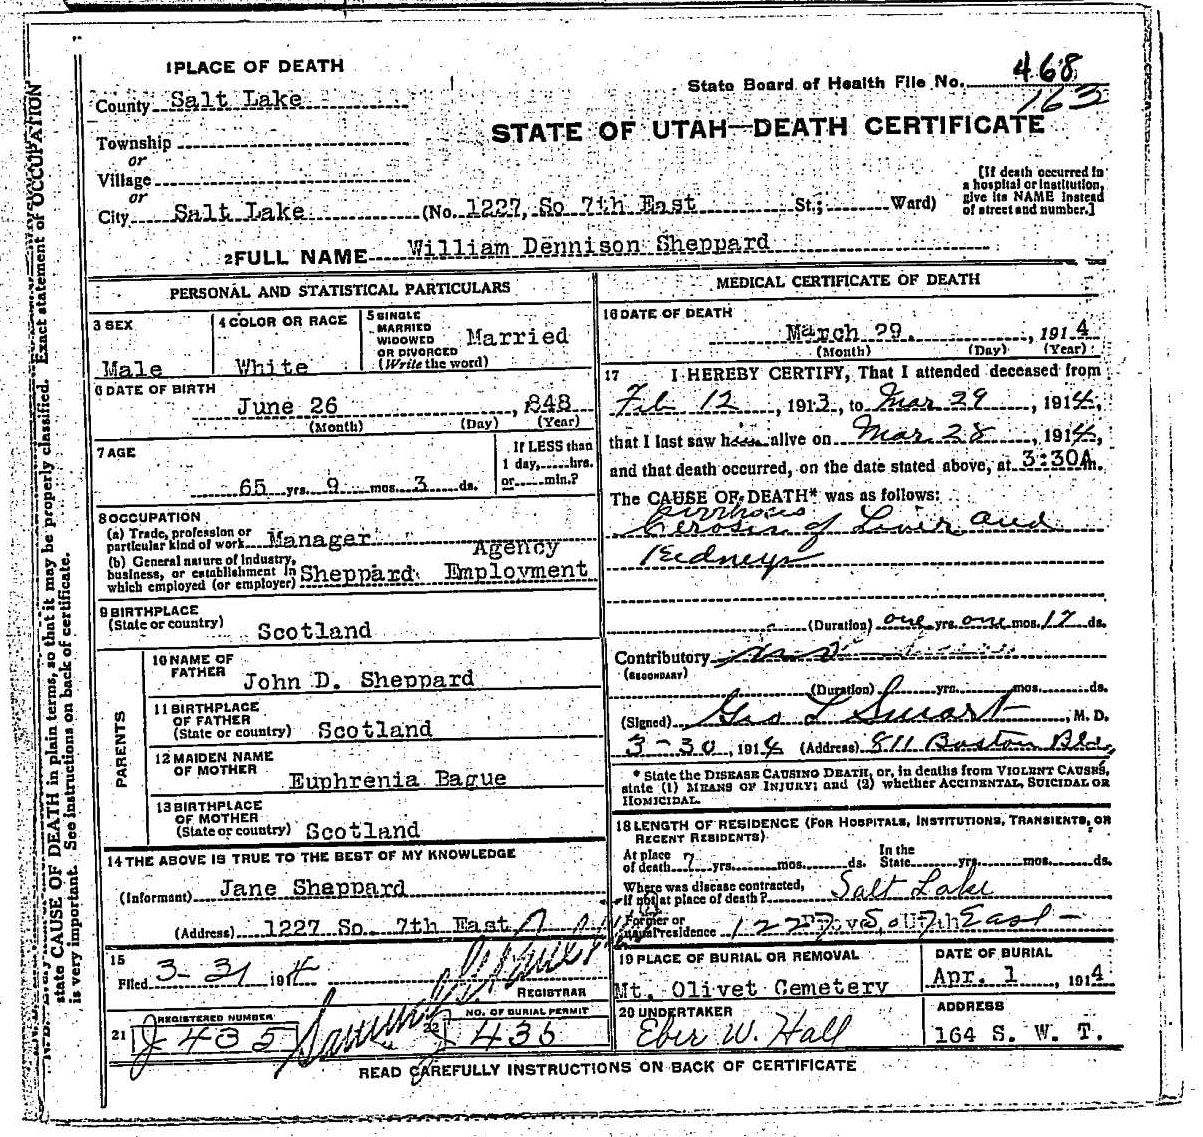 1 PLACE OF DEATH
County Salt Lake
State Board of Health File No. 468
163
STATE OF UTAH—DEATH CERTIFICATE
Township
or
Village
or
City Salt Lake (No. 1227, So 7th East St.; Ward)
[If death occurred in
a hospital or institution,
give its NAME instead
of street and number.]
2 FULL NAME William Dennison Sheppard
PERSONAL AND STATISTICAL PARTICULARS
3 SEX
Male
4 COLOR OR RACE
White
5 SINGLE
MARRIED
WIDOWED
OR DIVORCED
(Write the word)
Married
6 DATE OF BIRTH
June 26, 848
(Month) (Day) (Year)
7 AGE
65 yrs. 9 mos. 3 ds.
If LESS than
1 day, hrs.
or min.?
8 OCCUPATION
(a) Trade, profession or
particular kind of work Manager
(b) General nature of industry,
business, or establishment in
which employed (or employer) Sheppard Employment
Agency
9 BIRTHPLACE
(State or country)
Scotland
PARENTS
10 NAME OF
FATHER
John D. Sheppard
11 BIRTHPLACE
OF FATHER
(State or country) Scotland
12 MAIDEN NAME
OF MOTHER
Euphrenia Bague
13 BIRTHPLACE
OF MOTHER
(State or country) Scotland
14 THE ABOVE IS TRUE TO THE BEST OF MY KNOWLEDGE
(Informant) Jane Sheppard
(Address) 1227 So. 7th East
15
Filed 3-31 1914
REGISTRAR
21 REGISTERED NUMBER
J 435
22 NO. OF BURIAL PERMIT
J 436
MEDICAL CERTIFICATE OF DEATH
16 DATE OF DEATH
March 29. , 1914
(Month) (Day) (Year)
17 I HEREBY CERTIFY, That I attended deceased from
Feb 12, 1913, to Mar 29, 1914,
that I last saw him alive on Mar 28, 1914,
and that death occurred, on the date stated above, at 3:30A m.
The CAUSE OF DEATH* was as follows:
Cirrhosis
Cerosis of Liver and
Kidneys
(Duration) one yrs. one mos. 17 ds.
Contributory
(SECONDARY)
(Duration) yrs. mos. ds.
(Signed) Geo L Smart, M. D.
3-30, 1914 (Address) 811 Boston Bld,
* State the DISEASE CAUSING DEATH, or, in deaths from VIOLENT CAUSES,
state (1) MEANS OF INJURY; and (2) whether ACCIDENTAL, SUICIDAL OR
HOMICIDAL.
18 LENGTH OF RESIDENCE (FOR HOSPITALS, INSTITUTIONS, TRANSIENTS, OR
RECENT RESIDENTS)
At place
of death 7 yrs. mos. ds.
In the
State yrs. mos. ds.
Where was disease contracted,
If not at place of death? Salt Lake
Former or
usual residence
19 PLACE OF BURIAL OR REMOVAL
Mt. Olivet Cemetery
DATE OF BURIAL
Apr. 1, 1914
20 UNDERTAKER
Eber W. Hall
ADDRESS
164 S. W. T.
READ CAREFULLY INSTRUCTIONS ON BACK OF CERTIFICATE
state CAUSE OF DEATH in plain terms, so that it may be properly classified. Exact statement of OCCUPATION
is very important. See instructions on back of certificate.